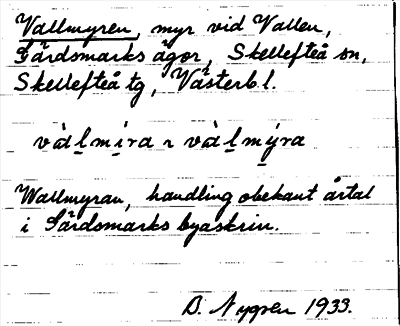 Vallmyren, myr vid Vallen,
Gärdsmarks ägor, Skellefteå sn,
Skellefteå tg, Västerb. l.
vàl̲mi̲ra ~ vàl̲mýra
Wallmyran, handling obekant årtal
i Gärdsmarks byaskrin.
B. Nygren 1933.